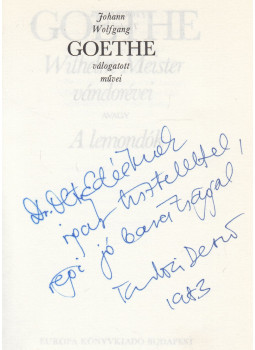 Johann
Wolfgang
GOETHE
válogatott
művei
Wilhelm Meister
vándorévei
avagy
A lemondók
Dr.
igaz tisztelettel,
régi jó barátsággal
Tandori Dezső
1983
EURÓPA KÖNYVKIADÓ BUDAPEST